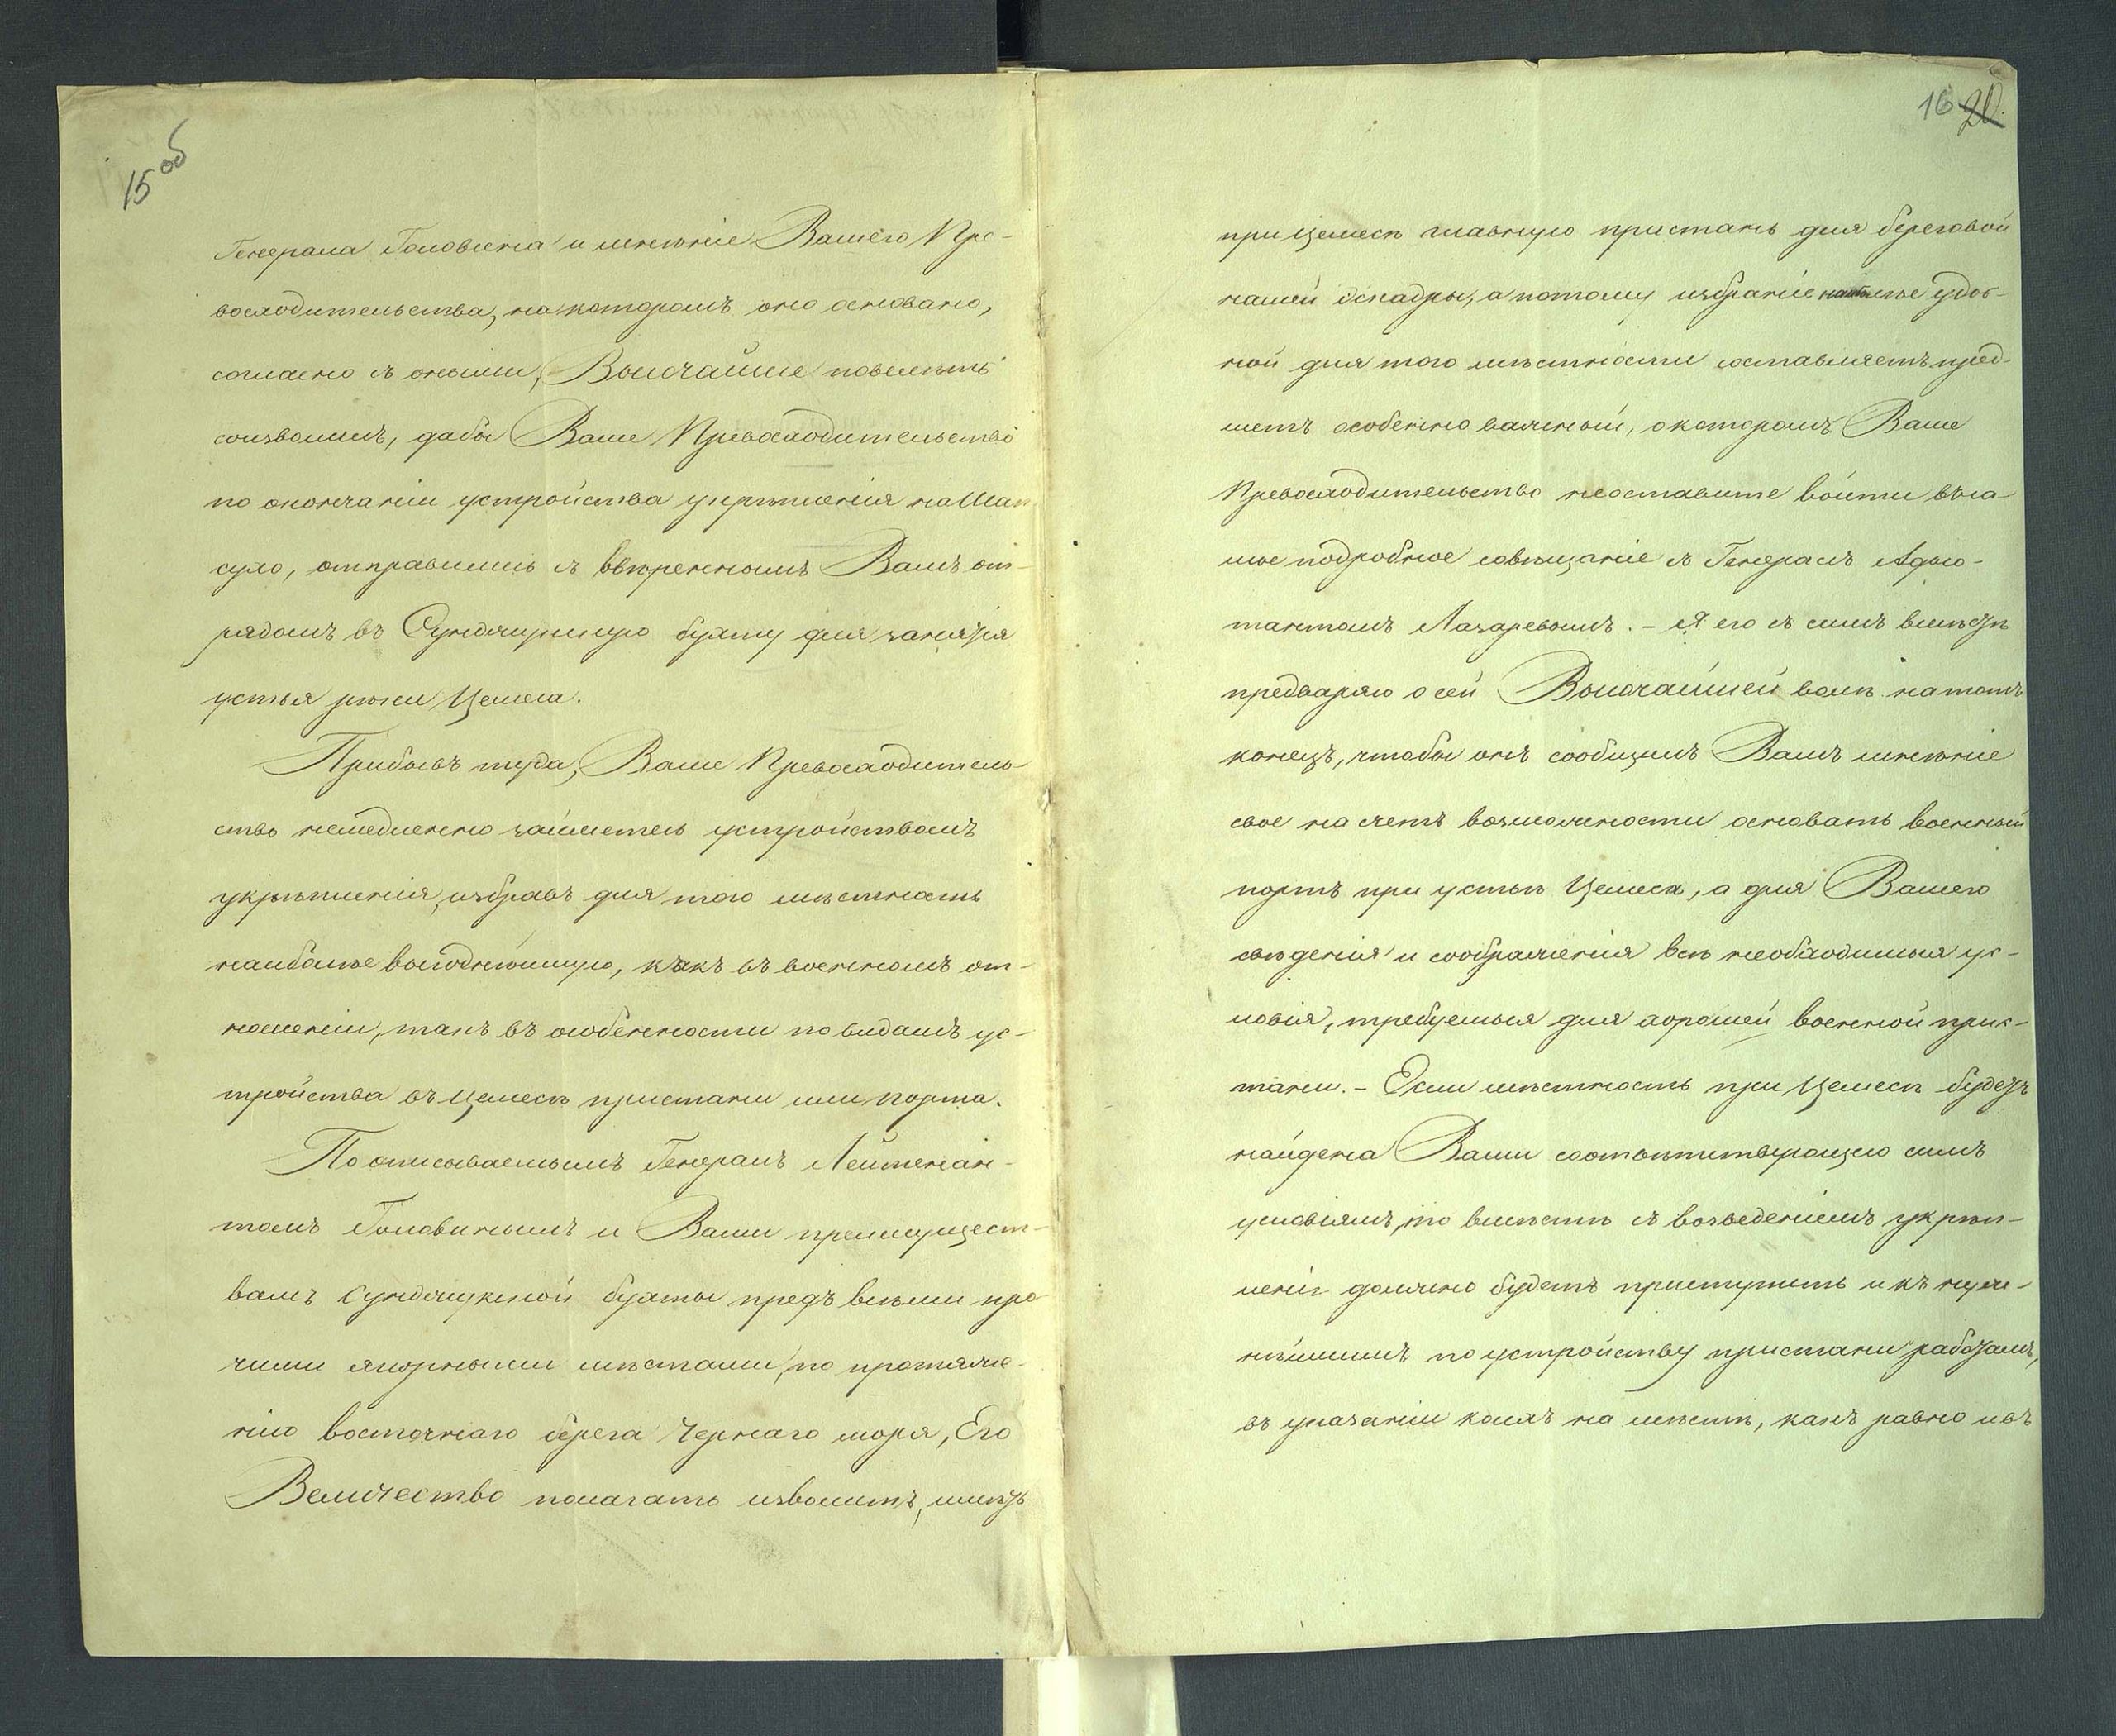 15 об
Генерала Головина и мнѣніе Вашего Пре-
восходительства, на которомъ оно основано,
согласно съ оными, Высочайше повелѣть
соизволилъ, дабы Ваше Превосходительство
по окончаніи устройства укрѣпленія на Шап
сухо, отправились съ ввѣреннымъ Вамъ от-
рядомъ въ Сунджукскую бухту для занятія
устья рѣки Цемеса.
Прибывъ туда, Ваше Превосходитель-
ство немедленно займетесь устройствомъ
укрѣпленія, избравъ для того мѣстность
наиболѣе выгоднѣйшую, какъ въ военномъ от-
ношеніи, такъ въ особенности по видамъ ус-
тройства въ Цемесѣ пристани или порта.
По описываемымъ Генералъ Лейтенан-
томъ Головинымъ и Вами преимущест-
вамъ Сунджукской бухты предъ всѣми про
чими якорными мѣстами, по протяже-
нію восточнаго берега Чернаго моря, Его
Величество полагать изволитъ, имѣть
16 20.
при Цемесѣ главную пристань для береговой
нашей эскадры, а потому избраніе наиболѣе удоб-
ной для того мѣстности составляетъ пред-
метъ особенно важный, о которомъ Ваше
Превосходительство неоставите войти въ са-
мое подробное совѣщаніе съ Генералъ Адъю-
тантомъ Лазаревымъ. - Я его съ симъ вмѣстѣ
предваряю о сей Высочайшей волѣ на тотъ
конецъ, чтобы онъ сообщилъ Вамъ мнѣніе
свое на счетъ возможности основать военный
портъ при устьѣ Цемеса, а для Вашего
свѣденія и соображенія всѣ необходимыя ус-
ловія, требуемыя для хорошей военной прис-
тани. - Если мѣстность при Цемесѣ будетъ
найдена Вами соотвѣтствующею симъ
условіямъ, то вмѣстѣ съ возведеніемъ укрѣп-
ленія должно будетъ приступить и къ нуж-
нѣйшимъ по устройству пристани работамъ,
въ указаніи коихъ на мѣстѣ, какъ равно и въ